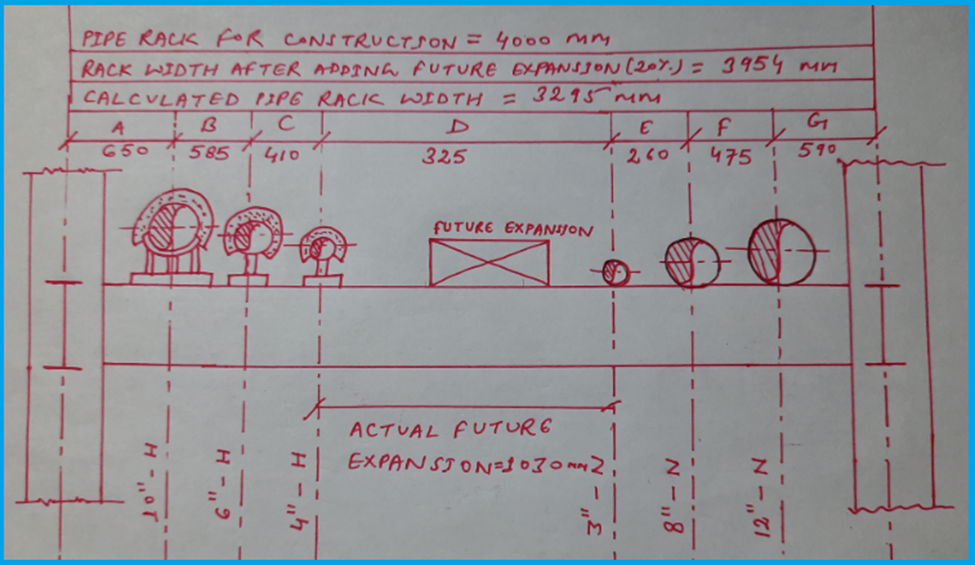 PIPE RACK FOR CONSTRUCTION = 4000 mm
RACK WIDTH AFTER ADDING FUTURE EXPANSION (20%) = 3954 mm
CALCULATED PIPE RACK WIDTH = 3295 mm
A B C D E F G
650 585 410 325 260 475 590
FUTURE EXPANSION
ACTUAL FUTURE
EXPANSION=1030 mm
10" - H
6" - H
4" - H
3" - N
8" - N
12" - N